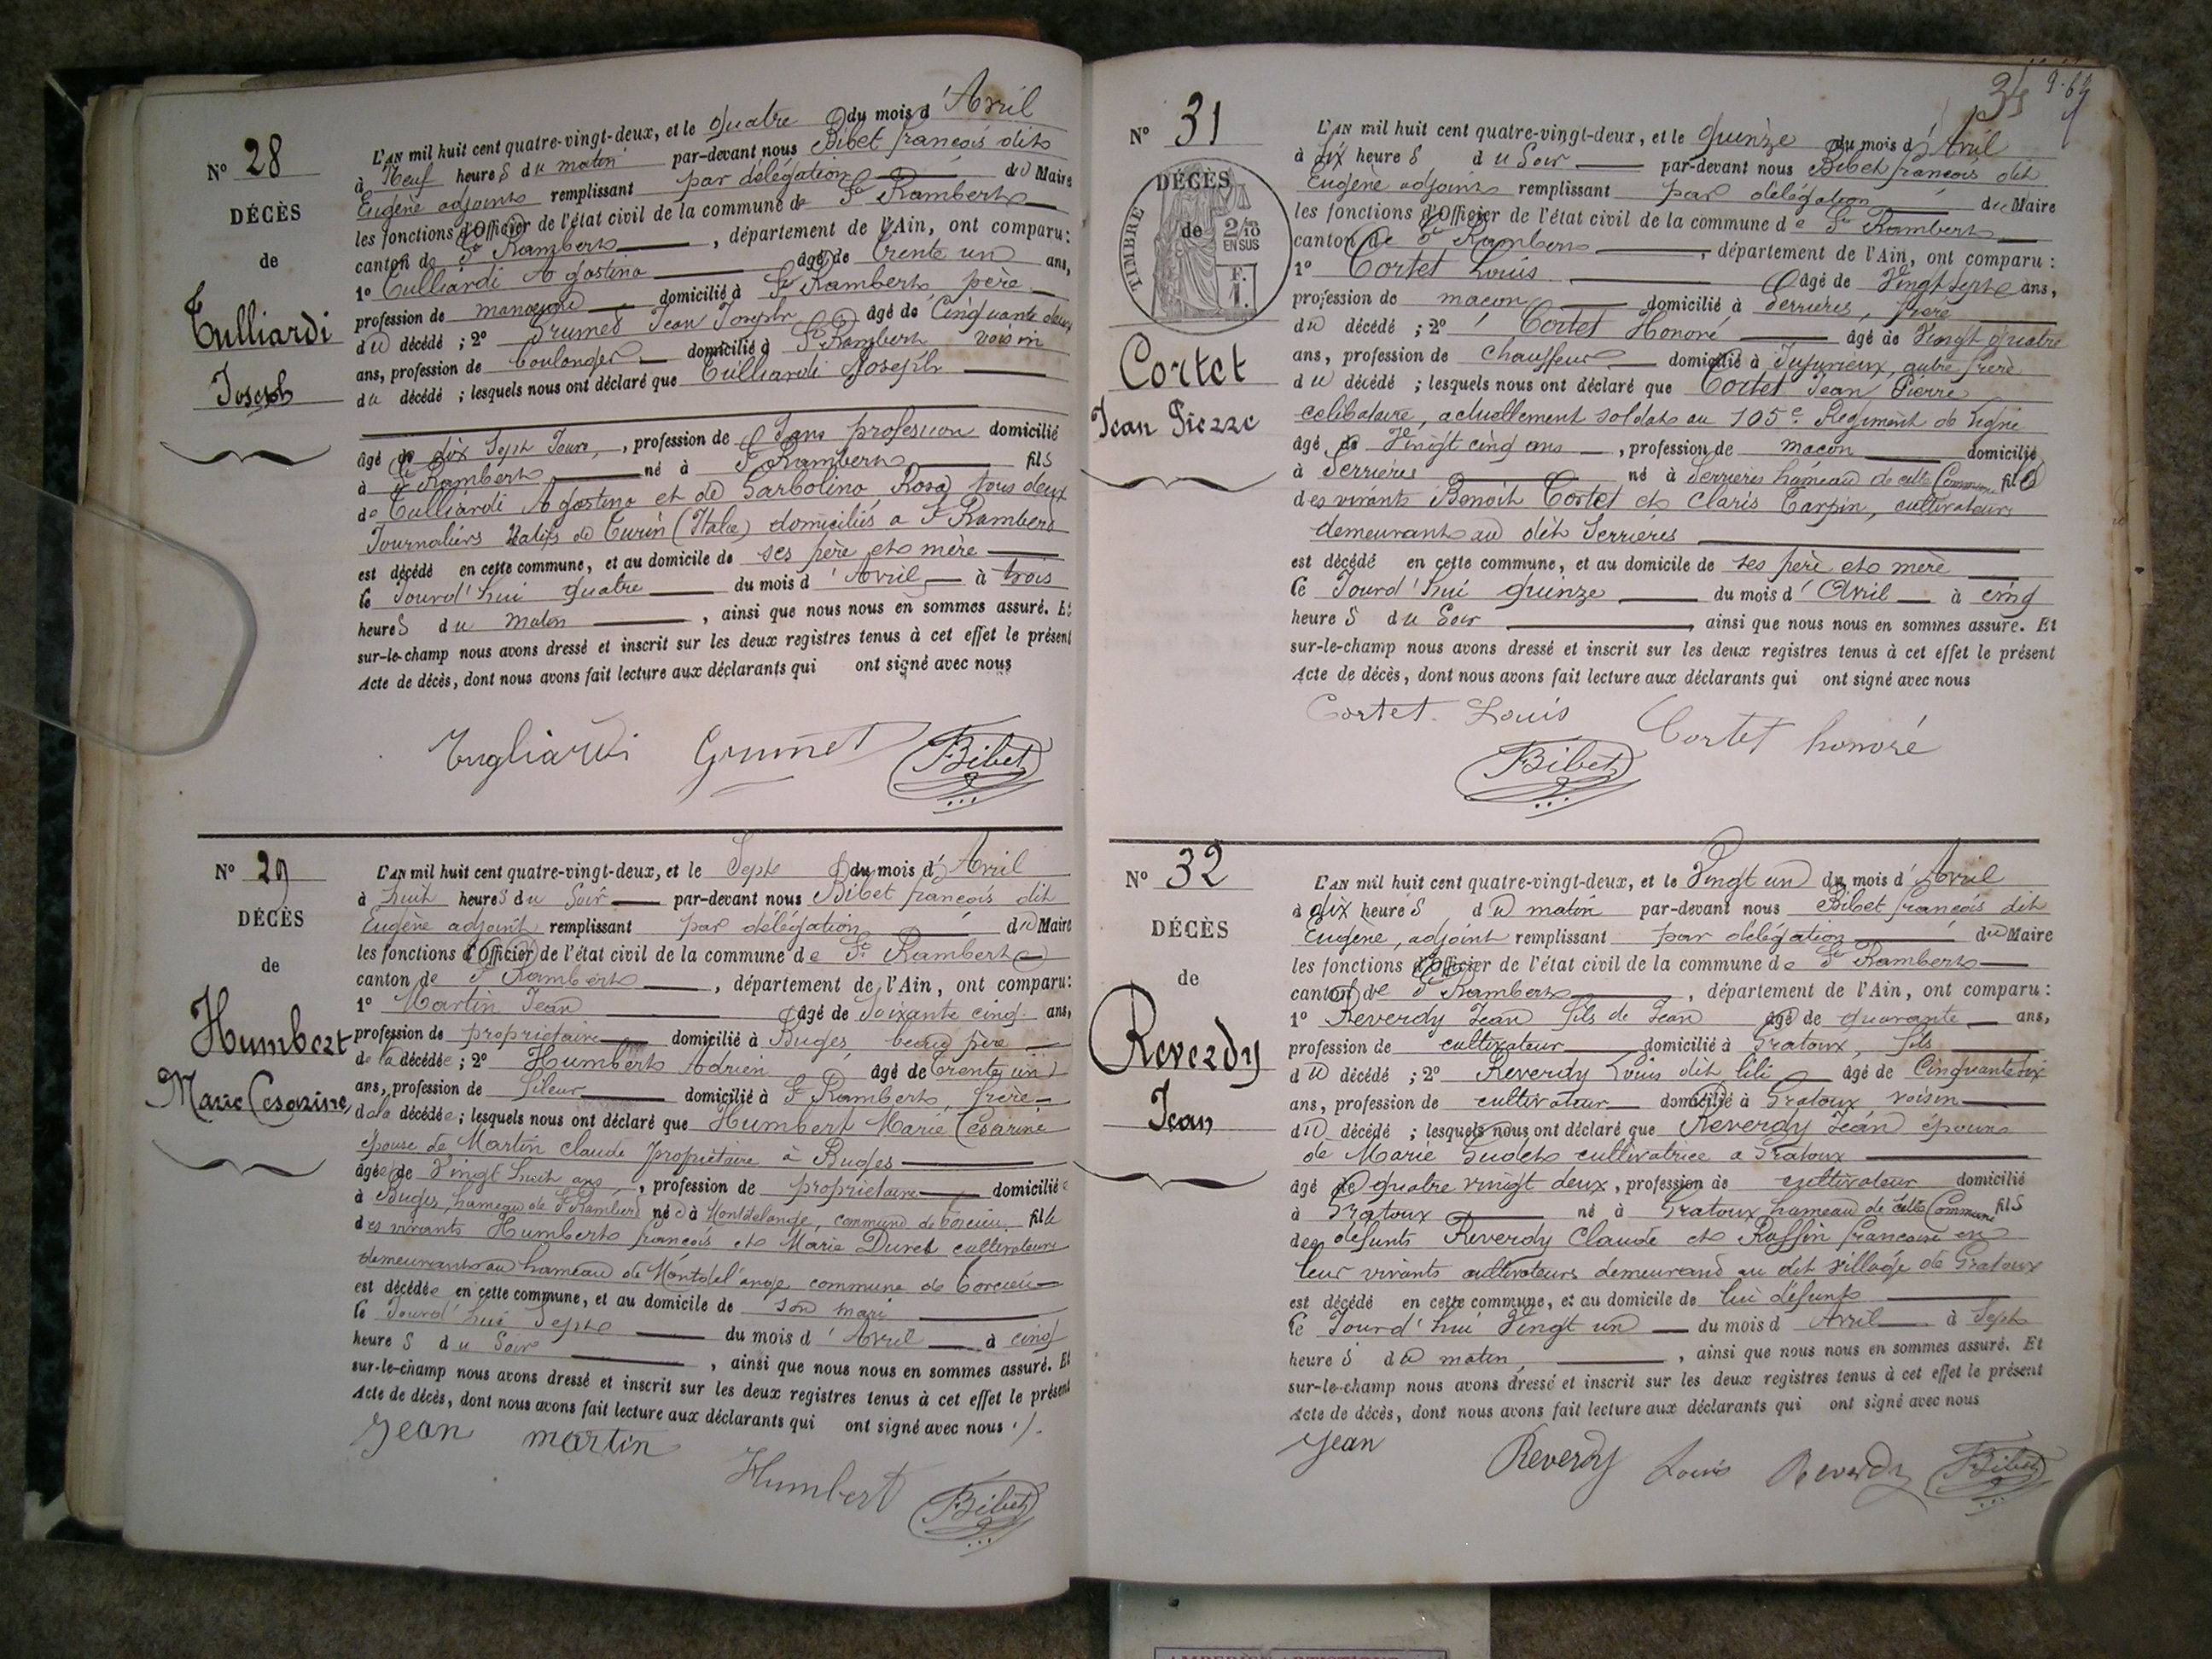 N° 28
DÉCÈS
de
Tulliardi
Joseph
L'AN mil huit cent quatre-vingt-deux, et le quatre du mois d'Avril
à Neuf heures du matin par-devant nous Bibet françois dit
Eugène adjoint remplissant par délégation du Maire
les fonctions d'Officier de l'état civil de la commune de St Rambert
canton de St Rambert, département de l'Ain, ont comparu:
1° Tulliardi Agostino âgé de trente un ans,
profession de manœuvre domicilié à St Rambert, père
du décédé ; 2° Grumet Jean Joseph âgé de Cinquante deux
ans, profession de boulanger domicilié à St Rambert voisin
du décédé ; lesquels nous ont déclaré que Tulliardi Joseph
âgé de dix Sept Jours, profession de Sans profession domicilié
à St Rambert né à St Rambert fils
de Tulliardi Agostino et de Garbolino Rosa tous deux
Journaliers Natifs de Turin (Italie) domiciliés a St Rambert
est décédé en cette commune, et au domicile de ses père et mère
le Jourd'hui quatre du mois d'Avril à trois
heures du matin, ainsi que nous nous en sommes assuré. Et
sur-le-champ nous avons dressé et inscrit sur les deux registres tenus à cet effet le présent
Acte de décès, dont nous avons fait lecture aux déclarants qui ont signé avec nous
Tugliardi Grumet Bibet
N° 29
DÉCÈS
de
Humbert
Marie Cesarine
L'AN mil huit cent quatre-vingt-deux, et le Sept du mois d'Avril
à huit heures du Soir par-devant nous Bibet françois dit
Eugène adjoint remplissant par délégation du Maire
les fonctions d'Officier de l'état civil de la commune de St Rambert
canton de St Rambert, département de l'Ain, ont comparu:
1° Martin Jean âgé de Soixante cinq ans,
profession de propriétaire domicilié à Buges, beau père
de la décédée ; 2° Humbert Adrien âgé de trente un
ans, profession de fileur domicilié à St Rambert, frère
de la décédée ; lesquels nous ont déclaré que Humbert Marie Cesarine
épouse de Martin claude propriétaire à Buges
âgée de Vingt huit ans, profession de propriétaire domiciliée
à Buges, hameau de St Rambert née à Montdelange, commune de torcieu fille
des vivants Humbert françois et Marie Duret cultivateurs
demeurants au hameau de Montdel'ange commune de torcieu
est décédée en cette commune, et au domicile de son mari
le Jourd'hui Sept du mois d'Avril à cinq
heures du Soir, ainsi que nous nous en sommes assuré. Et
sur-le-champ nous avons dressé et inscrit sur les deux registres tenus à cet effet le présent
Acte de décès, dont nous avons fait lecture aux déclarants qui ont signé avec nous ./.
Jean martin
Humbert Bibet
35
N° 31
DÉCÈS
de
TIMBRE
2/10
EN SUS
F.
1.
Cortet
Jean Pierre
L'AN mil huit cent quatre-vingt-deux, et le quinze du mois d'Avril
à Six heures du Soir par-devant nous Bibet françois dit
Eugène adjoint remplissant par délégation du Maire
les fonctions d'Officier de l'état civil de la commune de St Rambert
canton de St Rambert, département de l'Ain, ont comparu :
1° Cortet Louis âgé de Vingt Sept ans,
profession de maçon domicilié à Serrières, frère
du décédé ; 2° Cortet Honoré âgé de Vingt quatre
ans, profession de chauffeur domicilié à Jujurieux, autre frère
du décédé ; lesquels nous ont déclaré que Cortet Jean Pierre
celibataire, actuellement soldat au 105e Régiment de ligne
âgé de Vingt cinq ans, profession de maçon domicilié
à Serrières né à Serrieres hameau de cette Commune fils
des vivants Benoit Cortet et Claris Tarpin, cultivateurs
demeurants au dit Serrières
est décédé en cette commune, et au domicile de ses père et mère
le Jourd'hui quinze du mois d'Avril à cinq
heures du Soir, ainsi que nous nous en sommes assuré. Et
sur-le-champ nous avons dressé et inscrit sur les deux registres tenus à cet effet le présent
Acte de décès, dont nous avons fait lecture aux déclarants qui ont signé avec nous
Cortet Louis Cortet honoré
Bibet
N° 32
DÉCÈS
de
Reverdy
Jean
L'AN mil huit cent quatre-vingt-deux, et le Vingt un du mois d'Avril
à dix heures du matin par-devant nous Bibet françois dit
Eugène, adjoint remplissant par délégation du Maire
les fonctions d'Officier de l'état civil de la commune de St Rambert
canton de St Rambert, département de l'Ain, ont comparu :
1° Reverdy Jean fils de Jean âgé de quarante ans,
profession de cultivateur domicilié à Gratoux, fils
du décédé ; 2° Reverdy Louis dit lili âgé de Cinquante six
ans, profession de cultivateur domicilié à Gratoux voisin
du décédé ; lesquels nous ont déclaré que Reverdy Jean époux
de Marie cultivatrice a Gratoux
âgé de quatre vingt deux, profession de cultivateur domicilié
à Gratoux né à Gratoux hameau de cette Commune fils
des défunts Reverdy Claude et Ruffin françoise en
leur vivants cultivateurs demeurand au dit village de Gratoux
est décédé en cette commune, et au domicile de lui défunt
le Jourd'hui Vingt un du mois d Avril à Sept
heures du matin, ainsi que nous nous en sommes assuré. Et
sur-le-champ nous avons dressé et inscrit sur les deux registres tenus à cet effet le présent
Acte de décès, dont nous avons fait lecture aux déclarants qui ont signé avec nous
Jean Reverdy Louis Reverdy Bibet